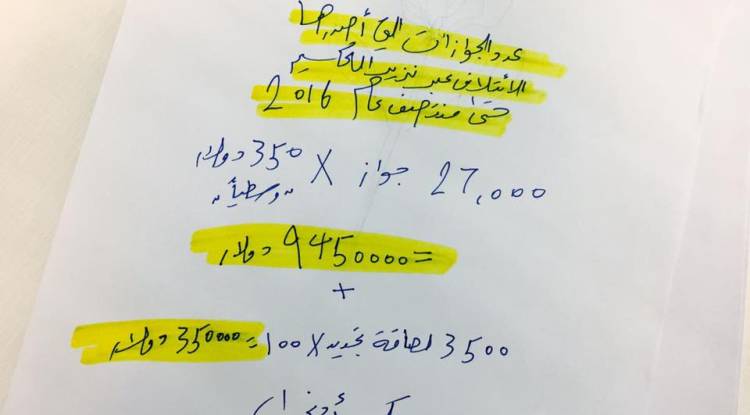 عدد الجوازات التي أصدرها
الائتلاف عبر نزير الحكيم
حتى منتصف عام 2016
27,000 جواز X 350 دولار
"وسطياً"
= 9450000 دولار
+
3500 لصاقة تجديد X 100 = 350000 دولار